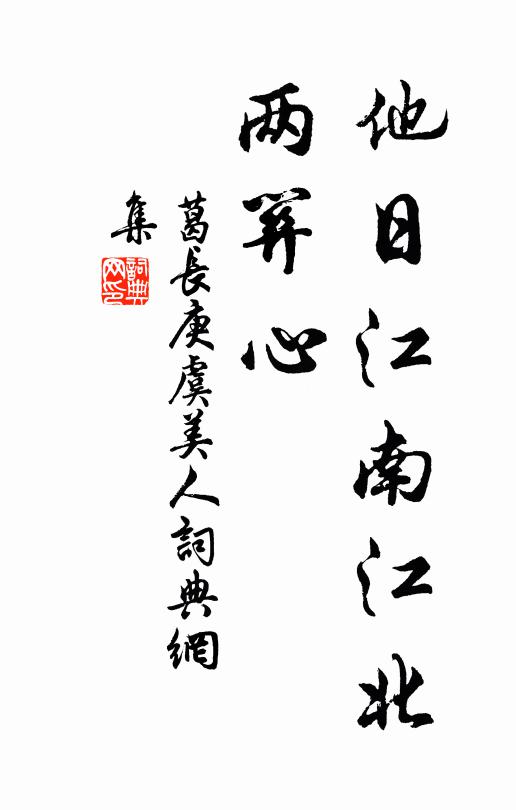 他日江南江北
两关心
葛長庚虞美人詞典網
集
詞典
网印